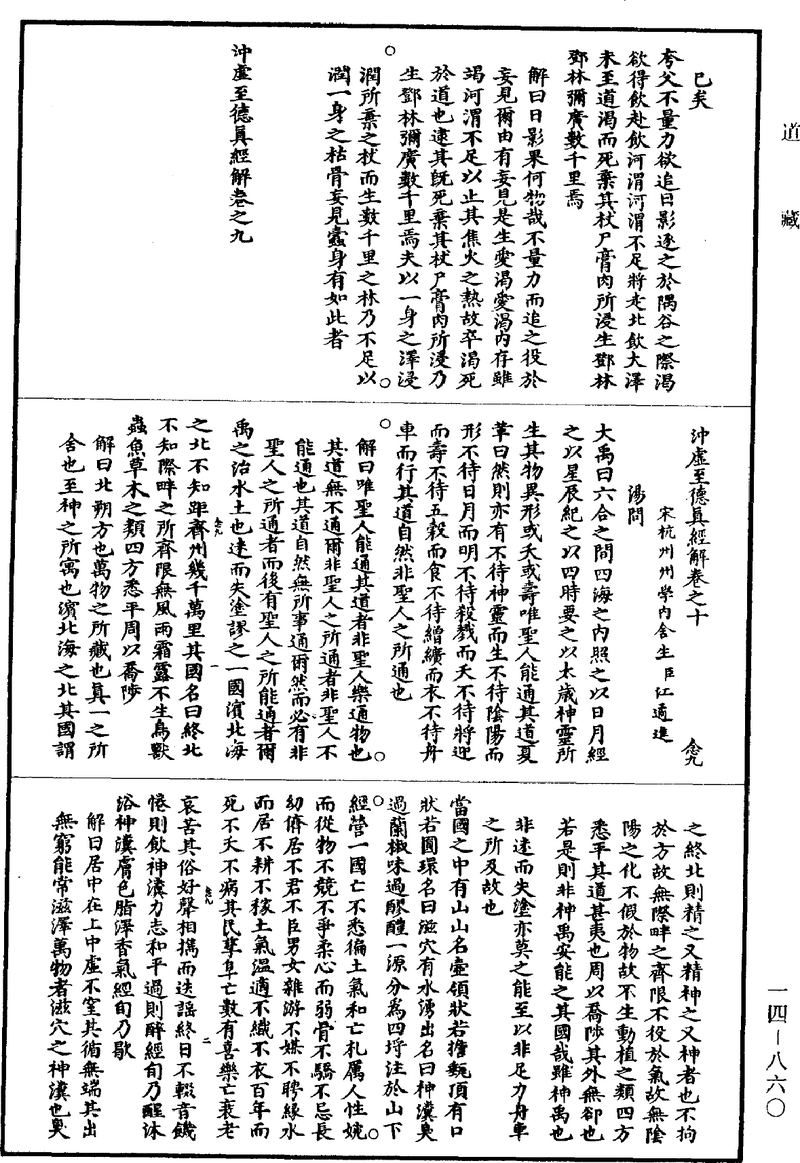 道藏
已矣
夸父不量力欲追日影逐之於隅谷之際渴
欲得飲赴飲河渭河渭不足將走北飲大澤
未至道渴而死棄其杖尸膏肉所浸生鄧林
鄧林彌廣數千里焉
解曰日影果何物哉不量力而追之役於
妄見爾由有妄見是生愛渴愛渴內存雖
竭河渭不足以止其焦火之熱故卒渴死
於道也逮其既死棄其杖尸膏肉所浸乃
生鄧林彌廣數千里焉夫以一身之澤浸
潤所棄之杖而生數千里之林乃不足以
潤一身之枯骨妄見蠹身有如此者
沖虛至德真經解卷之九
沖虛至德真經解卷之十 念九
宋杭州州學內舍生臣江遹進
湯問
大禹曰六合之間四海之內照之以日月經
之以星辰紀之以四時要之以太歲神靈所
生其物異形或夭或壽唯聖人能通其道夏
革曰然則亦有不待神靈而生不待陰陽而
形不待日月而明不待殺戮而夭不待將迎
而壽不待五穀而食不待繒纊而衣不待舟
車而行其道自然非聖人之所通也
解曰唯聖人能通其道者非聖人樂通物也
其道無不通爾非聖人之所通者非聖人不
能通也其道自然無所事通爾然而必有非
聖人之所通者而後有聖人之所能通者爾
禹之治水土也迷而失塗謬之一國濱北海
之北不知距齊州幾千萬里其國名曰終北
不知際畔之所齊限無風雨霜露不生鳥獸
蟲魚草木之類四方悉平周以喬陟
解曰北朔方也萬物之所藏也真一之所
舍也至神之所寓也濱北海之北其國謂
念九
一
之終北則精之又精神之又神者也不拘
於方故無際畔之齊限不役於氣故無陰
陽之化不假於物故不生動植之類四方
悉平其道甚夷也周以喬陟其外無卻也
若是則非神禹安能之其國哉雖神禹也
非迷而失塗亦莫之能至以非足力舟車
之所及故也
當國之中有山山名壺領狀若擔甀頂有口
狀若圓環名曰滋穴有水湧出名曰神瀵臭
過蘭椒味過醪醴一源分為四埒注於山下
經營一國亡不悉徧土氣和亡札厲人性婉
而從物不競不爭柔心而弱骨不驕不忌長
幼儕居不君不臣男女雜游不媒不聘緣水
而居不耕不稼土氣溫適不織不衣百年而
死不夭不病其民孳阜亡數有喜樂亡衰老
哀苦其俗好聲相攜而迭謡終日不輟音饑
惓則飲神瀵力志和平過則醉經旬乃醒沐
浴神瀵膚色脂澤香氣經旬乃歇
解曰居中在上中虛不窒其循無端其出
無窮能常滋澤萬物者滋穴之神瀵也臭
念九
二
一四－八六〇